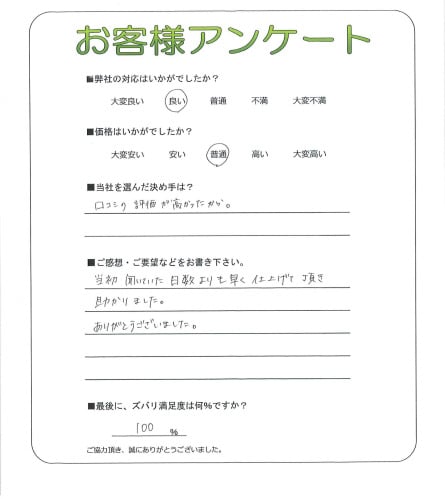 お客様アンケート
■弊社の対応はいかがでしたか？
大変良い 良い 普通 不満 大変不満
■価格はいかがでしたか？
大変安い 安い 普通 高い 大変高い
■当社を選んだ決め手は？
口コミの評価が高かったから。
■ご感想・ご要望などをお書き下さい。
当初聞いていた日数よりも早く仕上げて頂き
助かりました。
ありがとうございました。
■最後に、ズバリ満足度は何％ですか？
100 ％
ご協力頂き、誠にありがとうございました。